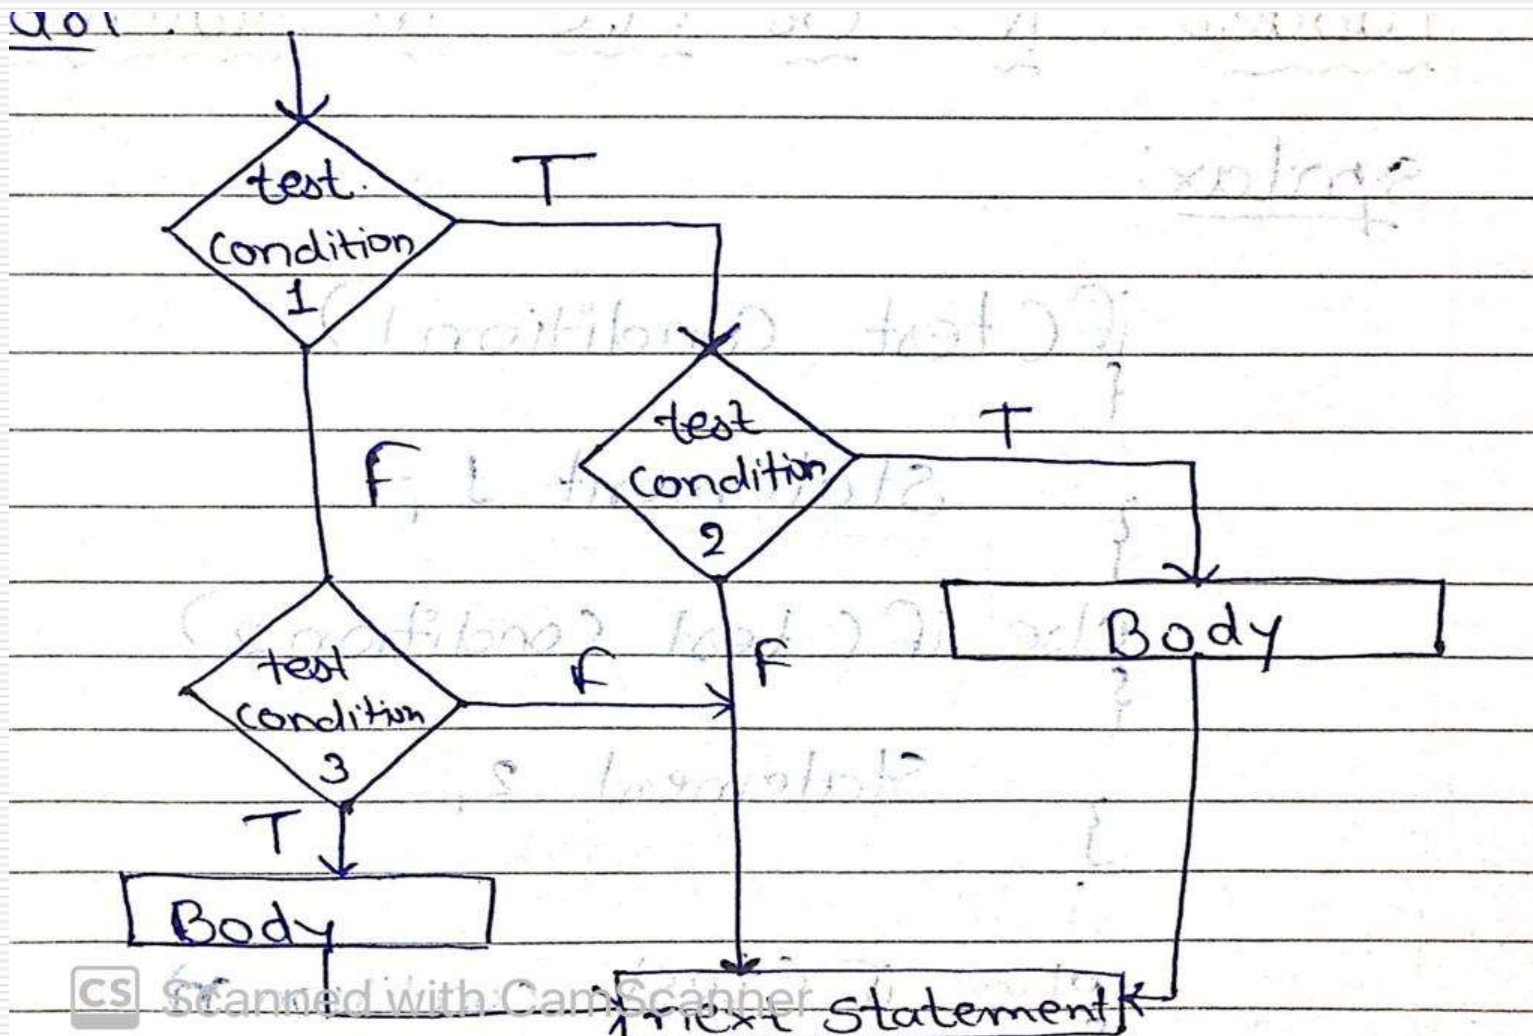 T
test
condition
1
F
T
test
condition
2
F
Body
test
condition
3
F
T
Body
next statement
CS Scanned with CamScanner